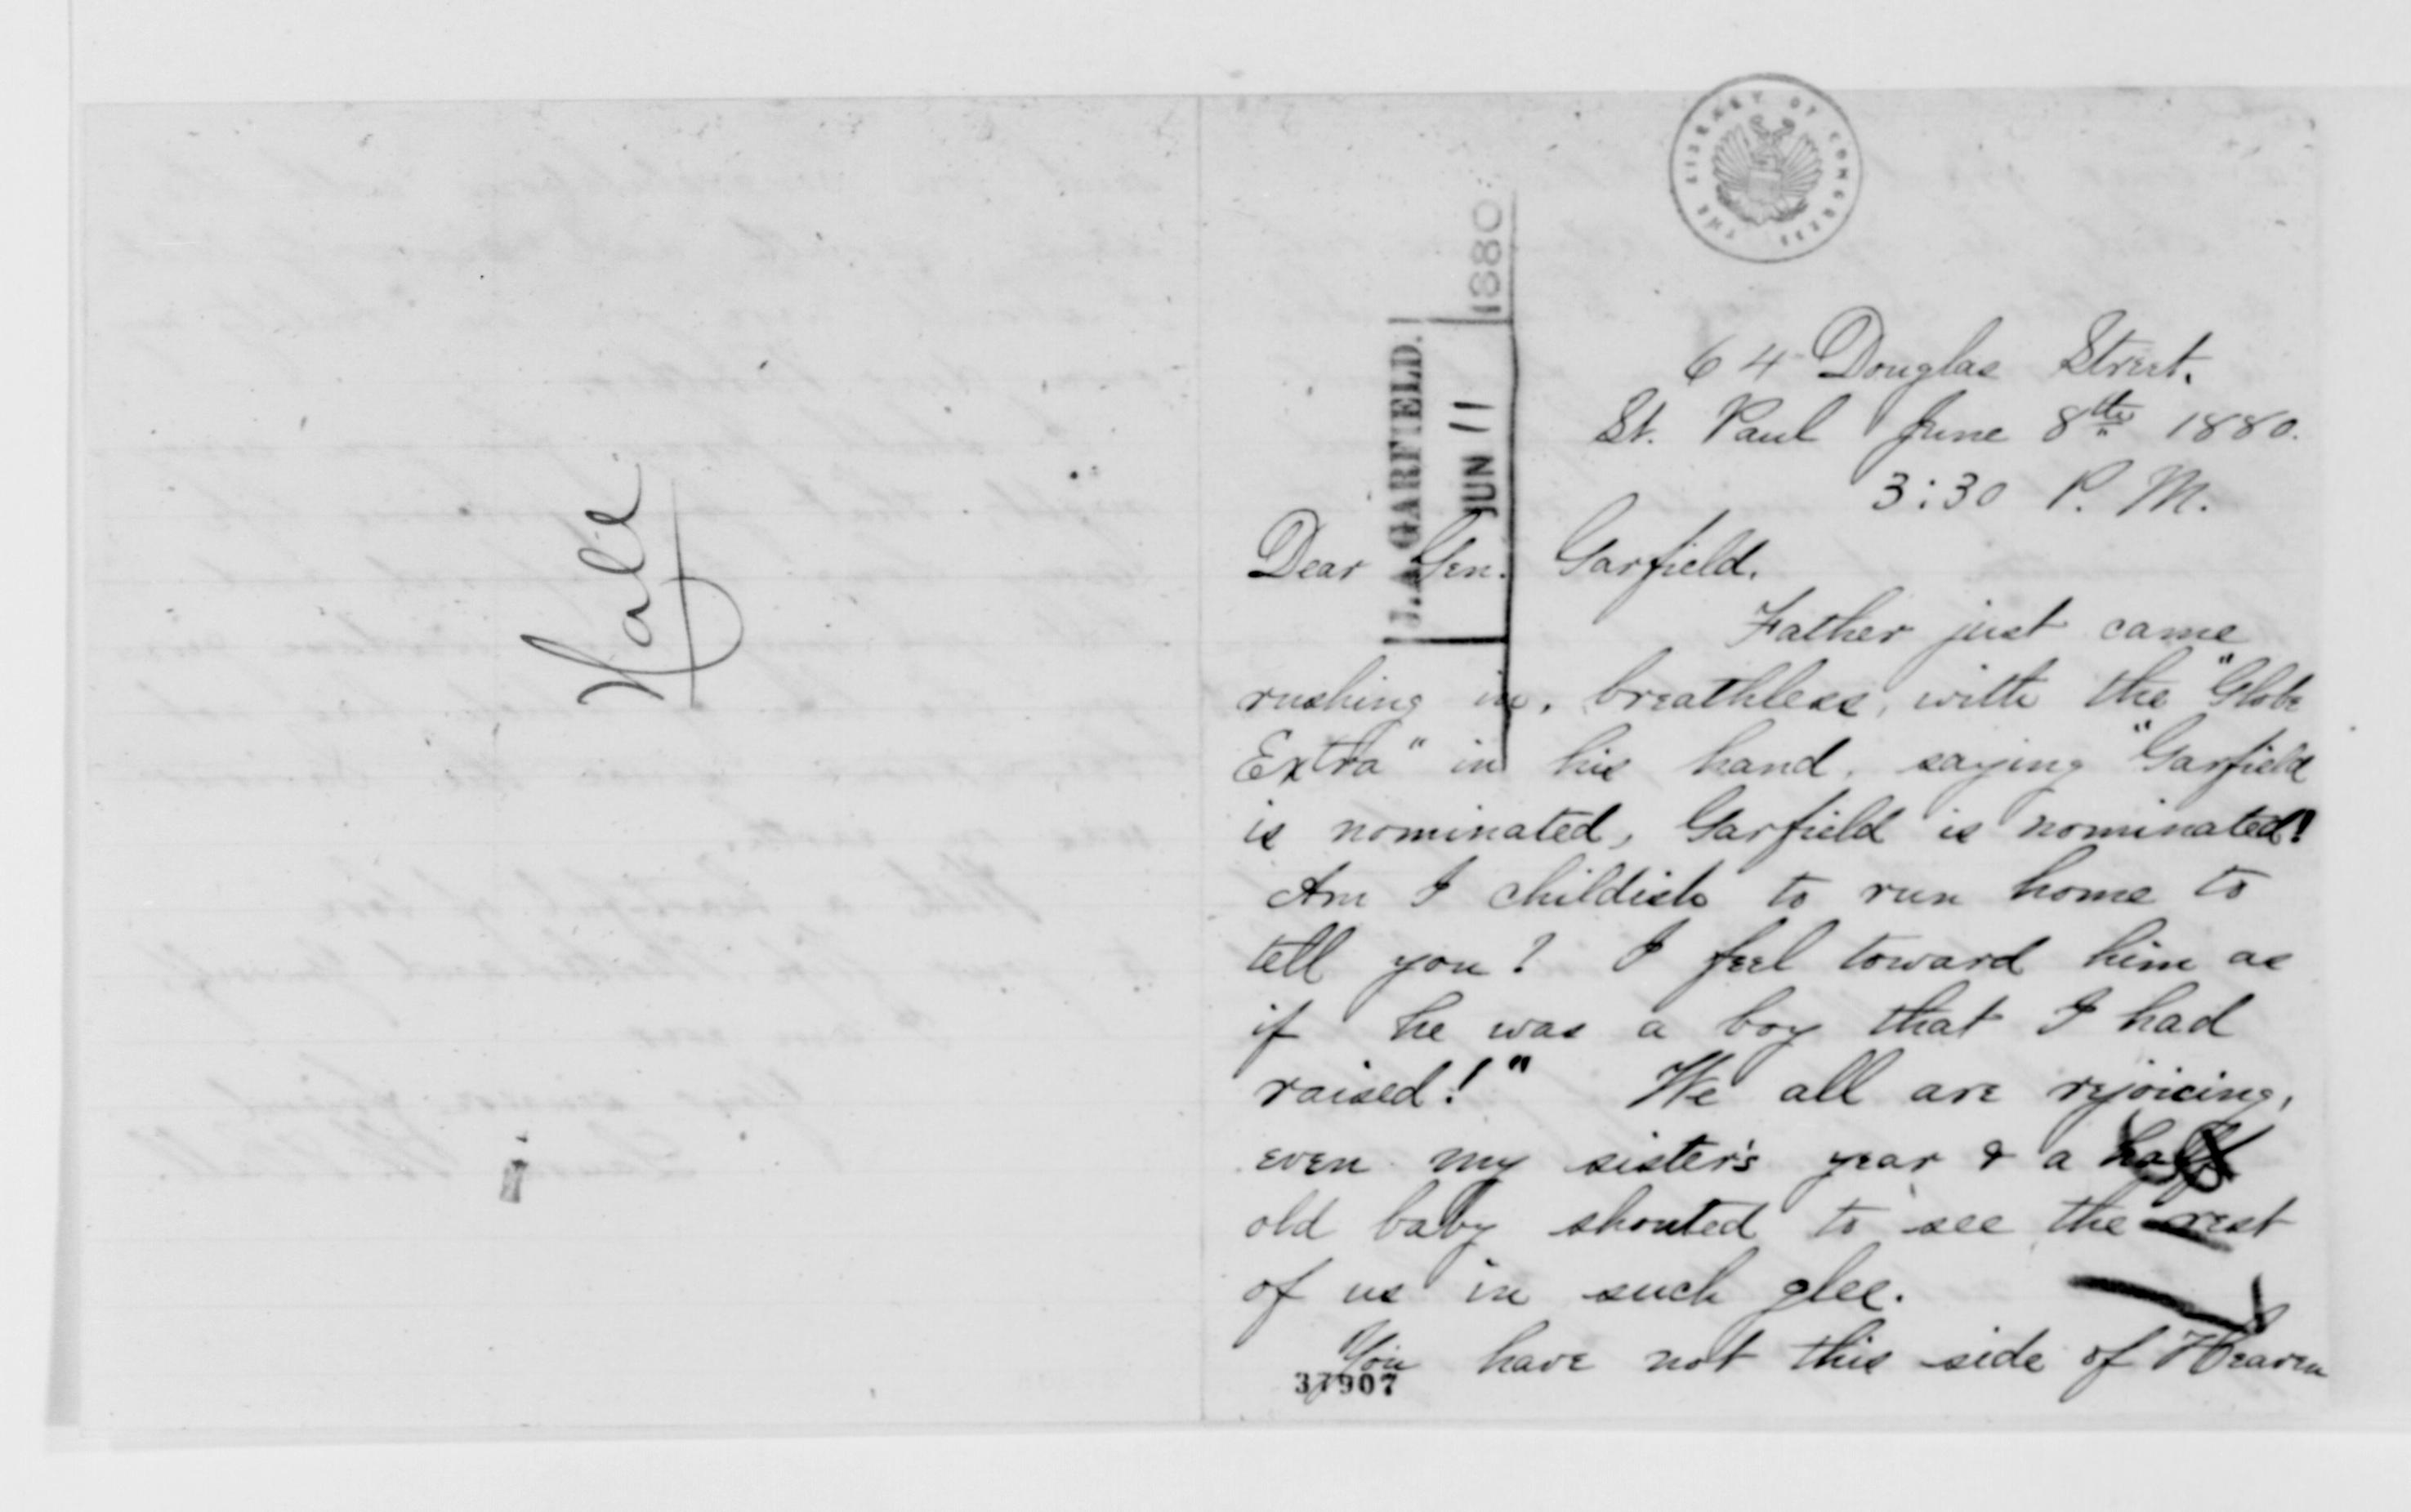 Hall
THE LIBRARY OF CONGRESS
J. A. GARFIELD.
JUN 11 1880
64 Douglas Street.
St. Paul June 8th 1880.
3:30 P. M.
Dear Gen. Garfield.
Father just came
rushing in, breathless, with the "Globe
Extra" in his hand, saying "Garfield
is nominated, Garfield is nominated!
Am I childish to run home to
tell you? I feel toward him as
if he was a boy that I had
raised!" We all are rejoicing,
even my sister's year & a half
old baby shouted to see the rest
of us in such glee.
You have not this side of Heaven
37907